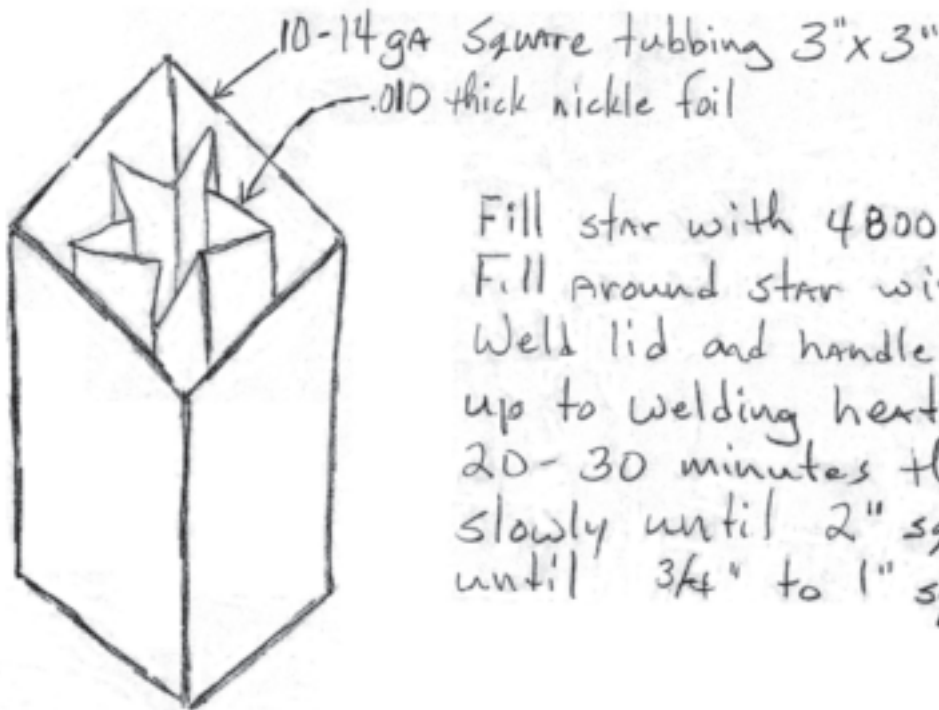 10-14 gA Square tubbing 3"x3"
.010 thick nickle foil
Fill star with 4800
Fill Around star
Weld lid and handle
up to welding heat
20-30 minutes
slowly until 2"
until 3/4" to 1"